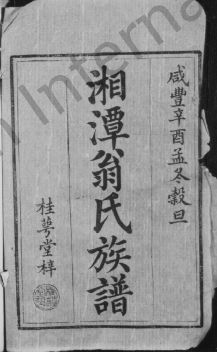 咸豐辛酉孟冬穀旦
湘潭翁氏族譜
桂萼堂梓